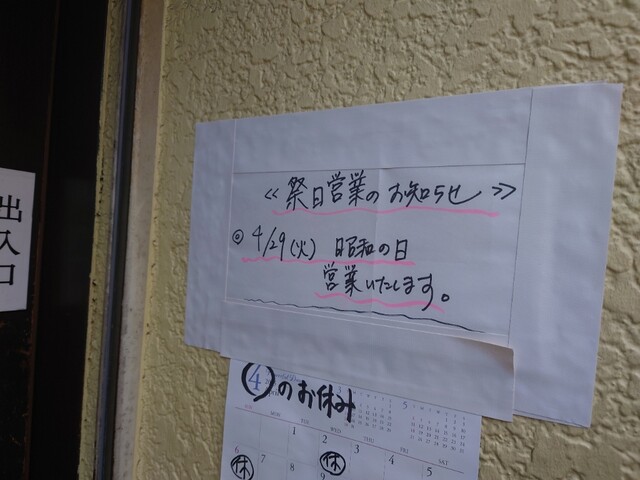 出入口
≪祭日営業のお知らせ≫
◎4/29(火) 昭和の日
営業いたします。
④のお休み
5
SUN MON TUE WED THU FRI SAT
1 2 3 4 5
6 7 8 9
休 休